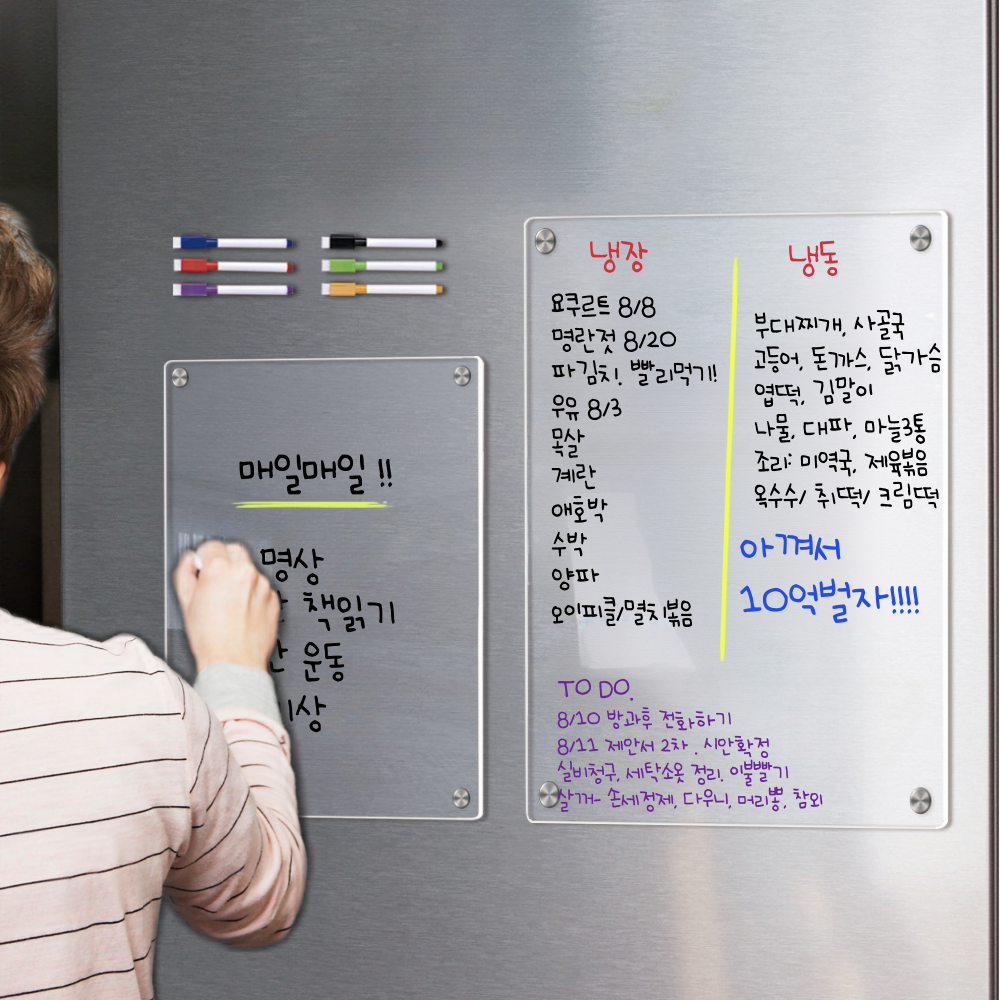 매일매일 !!
명상
책읽기
운동
냉장
요쿠르트 8/8
명란젓 8/20
파김치. 빨리먹기!
우유 8/3
목살
계란
애호박
수박
양파
오이피클/멸치볶음
냉동
부대찌개, 사골국
고등어, 돈까스, 닭가슴
엽떡, 김말이
나물, 대파, 마늘3통
조리: 미역국, 제육볶음
옥수수/ 취떡/ 크림떡
아껴서
10억벌자!!!!
TO DO.
8/10 방과후 전화하기
8/11 제안서 2차 . 시안확정
실비청구, 세탁소옷 정리. 이불빨기
살꺼- 손세정제, 다우니, 머리뽕, 참외